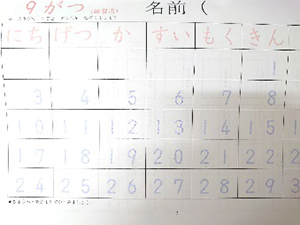 9がつ 名前（
にち げつ か すい もく きん
1
3 4 5 6 7 8
10 11 12 13 14 15
17 18 19 20 21 22 2
24 25 26 27 28 29 3